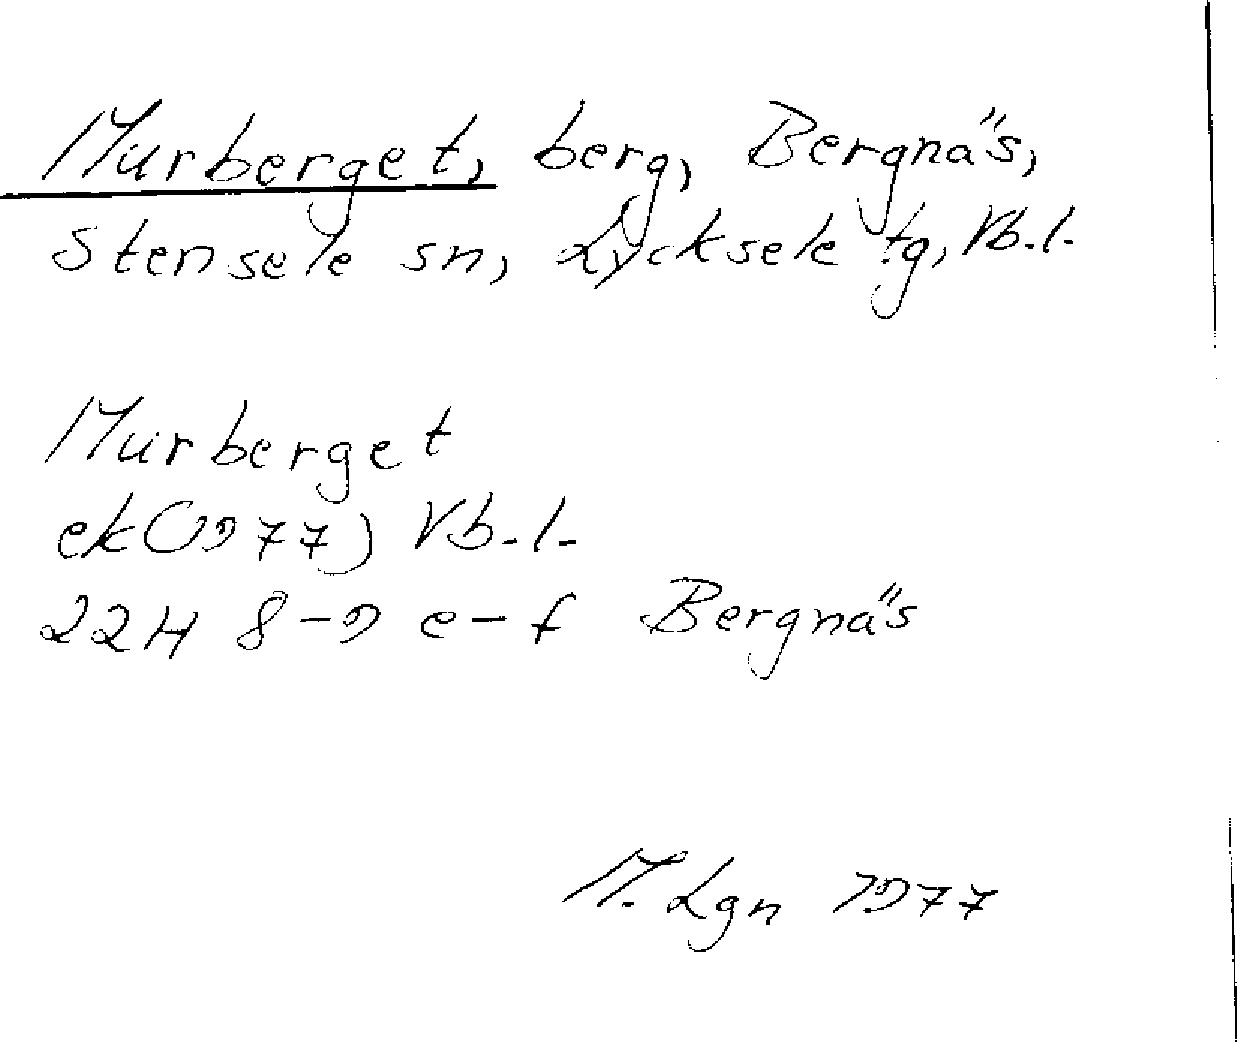 Murberget, berg, Bergnäs,
Stensele sn, Lycksele tg, Vb.l.
Murberget
ek (1977) Vb.l.
22H 8-9 e-f Bergnäs
M. Lgn 1977